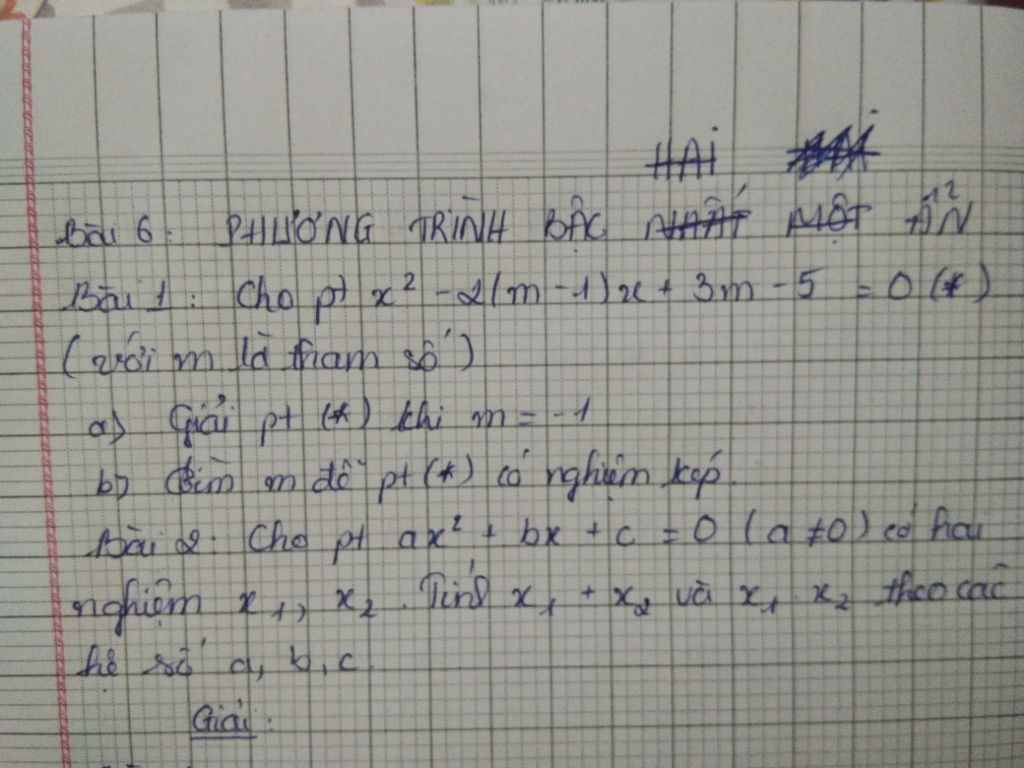 HAI
Bài 6: PHƯƠNG TRÌNH BẬC NHẤT MỘT ẨN
Bài 1: Cho pt x² - 2(m - 1)x + 3m - 5 = 0 (*)
(với m là tham số)
a) Giải pt (*) khi m = -1
b) Tìm m để pt (*) có nghiệm kép.
Bài 2: Cho pt ax² + bx + c = 0 (a ≠ 0) có hai
nghiệm x₁, x₂. Tính x₁ + x₂ và x₁ . x₂ theo các
hệ số a, b, c
Giải: